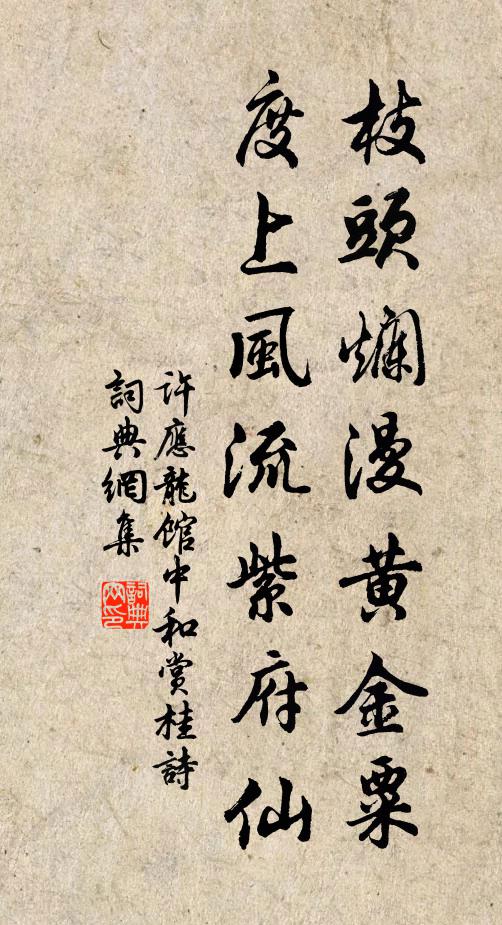 枝頭爛漫黄金粟
度上風流紫府仙
許應龍館中和賞桂詩
詞典網集
詞典網印